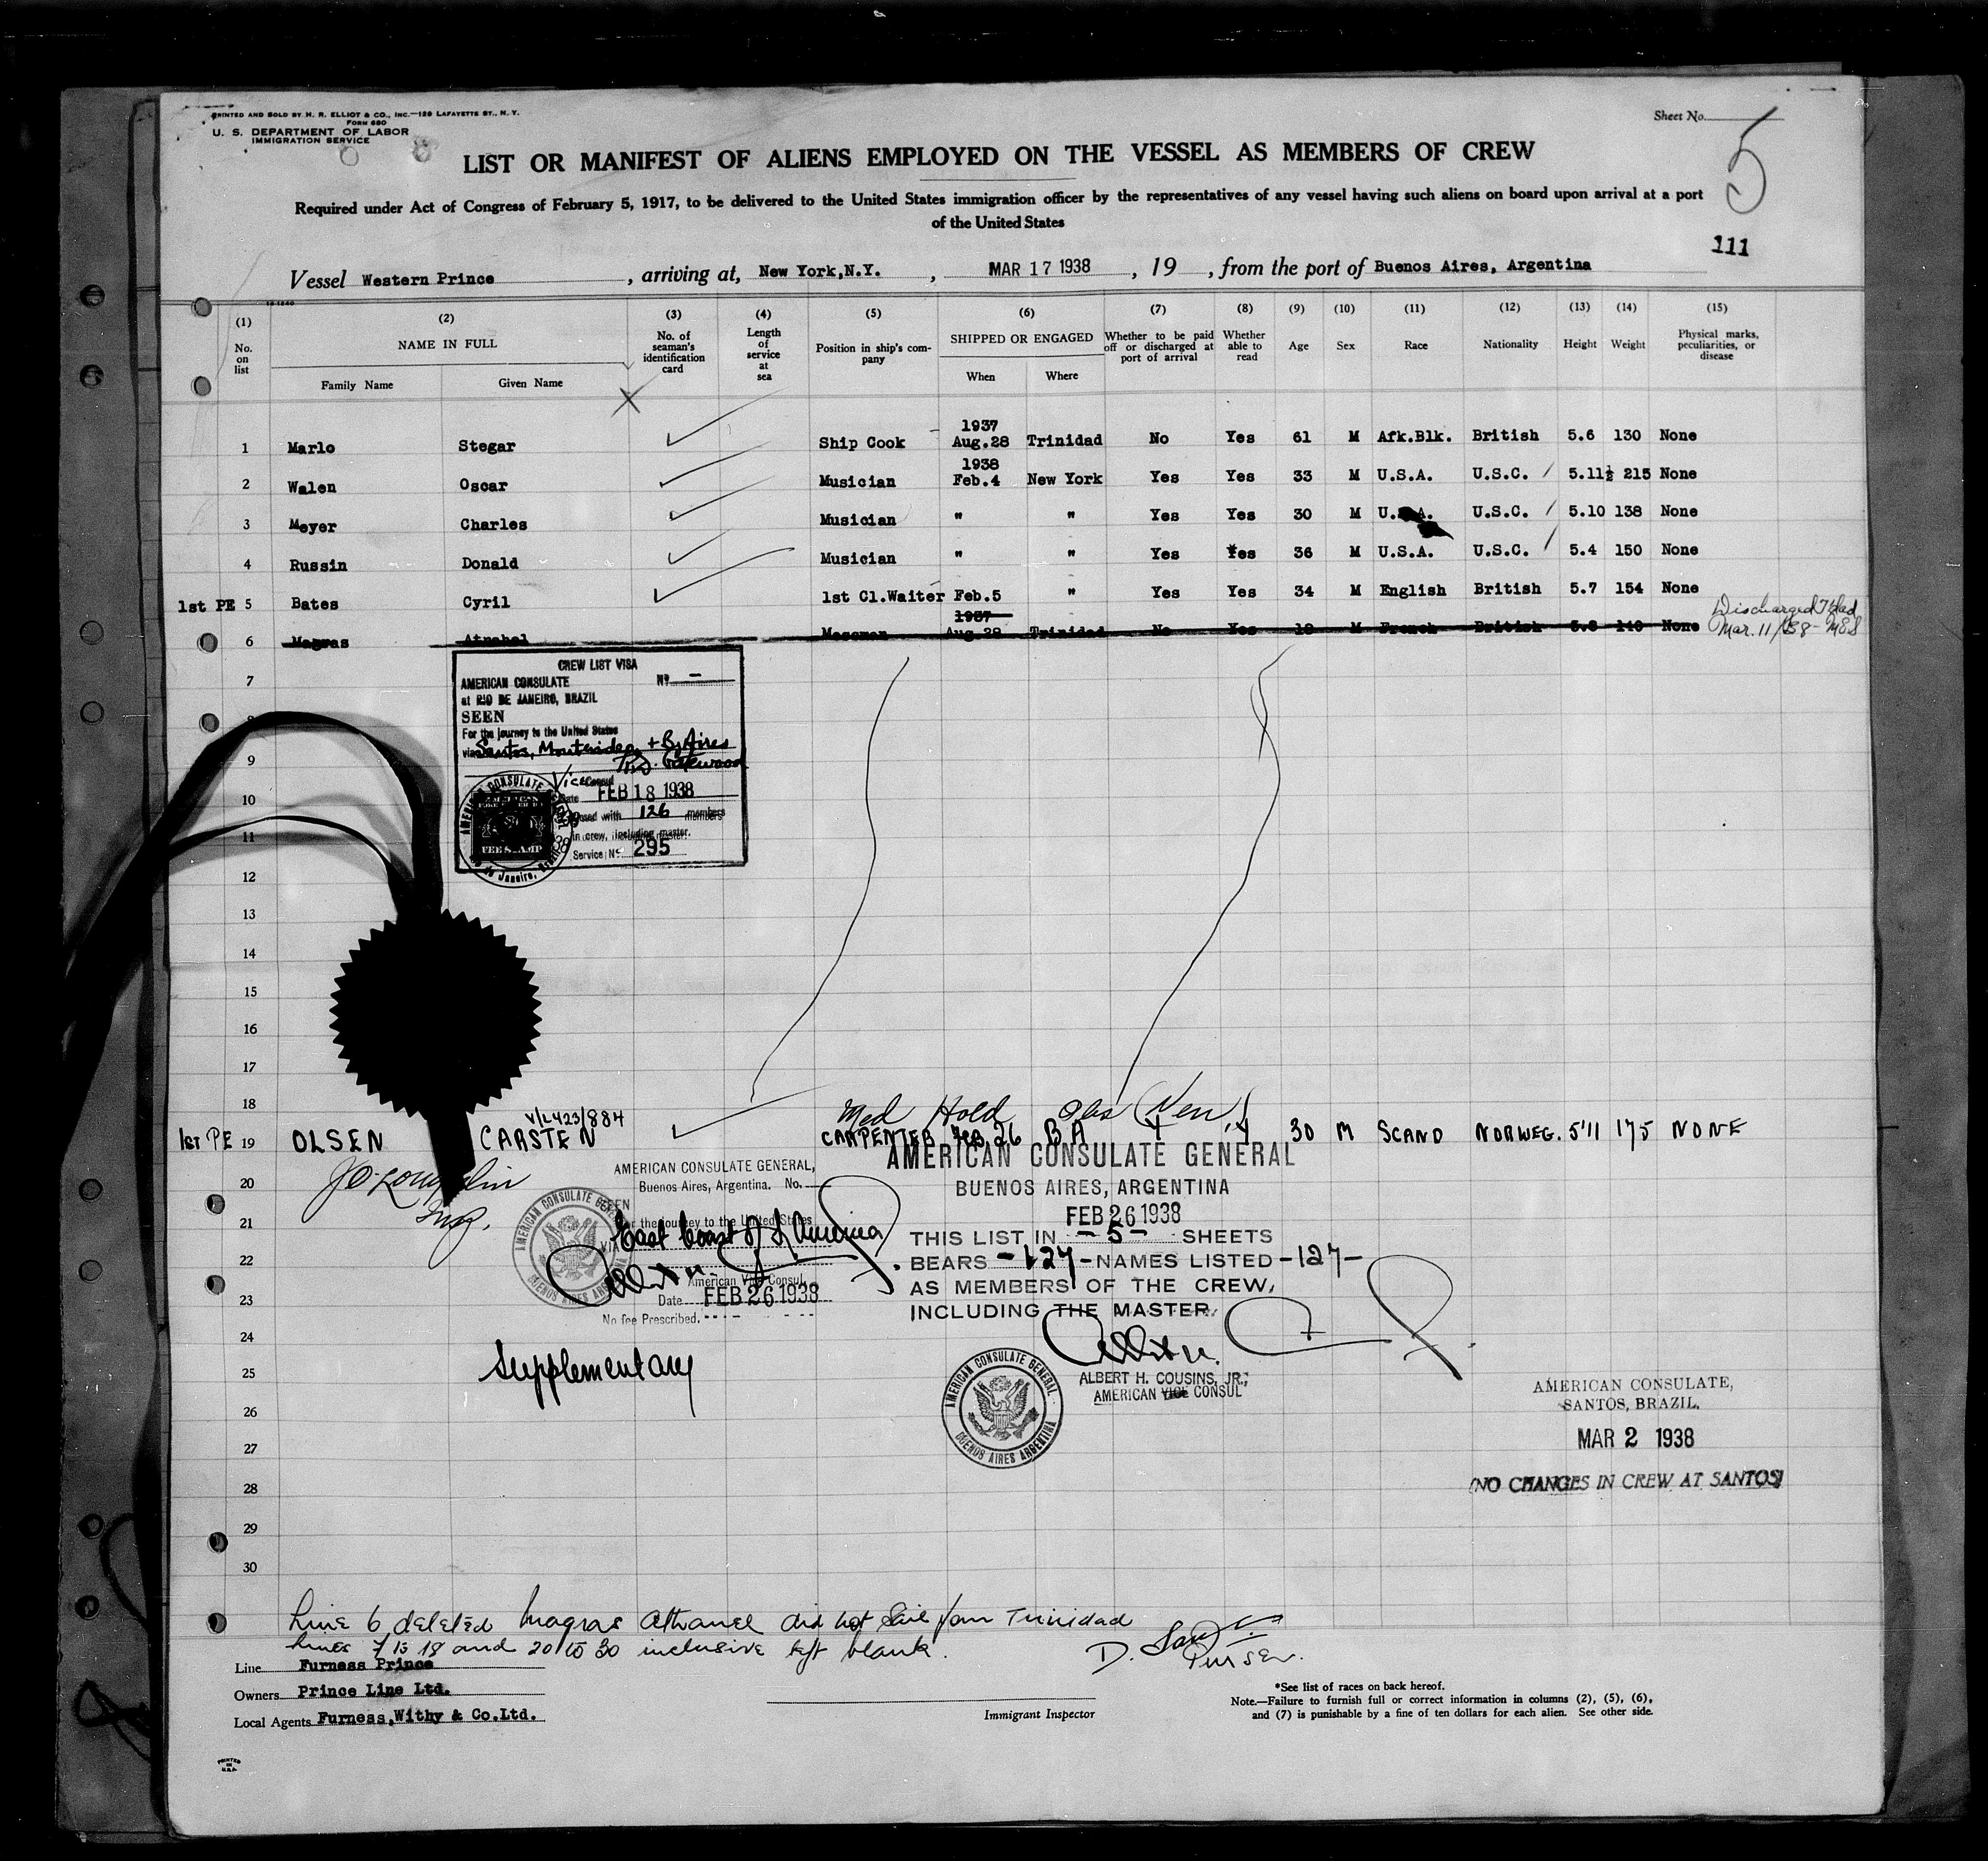 PRINTED AND SOLD BY H. R. ELLIOT & CO., INC.—129 LAFAYETTE ST., N. Y.
FORM 680
U. S. DEPARTMENT OF LABOR
IMMIGRATION SERVICE
Sheet No.
5
LIST OR MANIFEST OF ALIENS EMPLOYED ON THE VESSEL AS MEMBERS OF CREW
Required under Act of Congress of February 5, 1917, to be delivered to the United States immigration officer by the representatives of any vessel having such aliens on board upon arrival at a port
of the United States
111
Vessel Western Prince, arriving at, New York,N.Y., MAR 17 1938, 19 , from the port of Buenos Aires, Argentina
(1) No. on list
(2) NAME IN FULL Family Name Given Name
(3) No. of seaman's identification card
(4) Length of service at sea
(5) Position in ship's company
(6) SHIPPED OR ENGAGED When Where
(7) Whether to be paid off or discharged at port of arrival
(8) Whether able to read
(9) Age
(10) Sex
(11) Race
(12) Nationality
(13) Height
(14) Weight
(15) Physical marks, peculiarities, or disease
1 Marlo Stegar Ship Cook 1937 Aug.28 Trinidad No Yes 61 M Afk.Blk. British 5.6 130 None
2 Walen Oscar Musician 1938 Feb.4 New York Yes Yes 33 M U.S.A. U.S.C. 5.11½ 215 None
3 Meyer Charles Musician " " Yes Yes 30 M U.S.A. U.S.C. 5.10 138 None
4 Russin Donald Musician " " Yes Yes 36 M U.S.A. U.S.C. 5.4 150 None
1st PE 5 Bates Cyril 1st Cl.Waiter Feb.5 " Yes Yes 34 M English British 5.7 154 None
6 Magras Messman 1937 Aug.28 Trinidad No Yes M French British None
Discharged T'dad
Mar. 11/38 -
7
CREW LIST VISA
AMERICAN CONSULATE Nº —
at RIO DE JANEIRO, BRAZIL
SEEN
For the journey to the United States
via Santos, Montevideo + B. Aires
Vice Consul
Date FEB 18 1938
126 members
in crew, including master.
Service Nº 295
AMERICAN CONSULATE
FEE STAMP
8
9
10
11
12
13
14
15
16
17
18
V/L 423/884
Med Hold
1st PE 19 OLSEN CARSTEN CARPENTER Feb 26 B A Y Y 30 M SCAND NORWEG. 5'11 175 NONE
20
21
22
23
24
25
26
27
28
29
30
AMERICAN CONSULATE GENERAL,
Buenos Aires, Argentina. No.
SEEN
For the journey to the United States
VIA East Coast of S. America
American Vice Consul
Date FEB 26 1938
No fee Prescribed.
Supplementary
AMERICAN CONSULATE GENERAL
BUENOS AIRES, ARGENTINA
FEB 26 1938
THIS LIST IN -5- SHEETS
BEARS -127- NAMES LISTED -127-
AS MEMBERS OF THE CREW,
INCLUDING THE MASTER.
ALBERT H. COUSINS, JR.,
AMERICAN VICE CONSUL
AMERICAN CONSULATE GENERAL
BUENOS AIRES ARGENTINA
AMERICAN CONSULATE,
SANTOS, BRAZIL.
MAR 2 1938
(NO CHANGES IN CREW AT SANTOS)
Line 6 deleted Magras Athanel did not sail from Trinidad
Lines 7 to 18 and 20 to 30 inclusive left blank.
Purser.
Line Furness Prince
Owners Prince Line Ltd.
Local Agents Furness,Withy & Co.Ltd.
Immigrant Inspector
*See list of races on back hereof.
Note.—Failure to furnish full or correct information in columns (2), (5), (6),
and (7) is punishable by a fine of ten dollars for each alien. See other side.
PRINTED
IN
U.S.A.